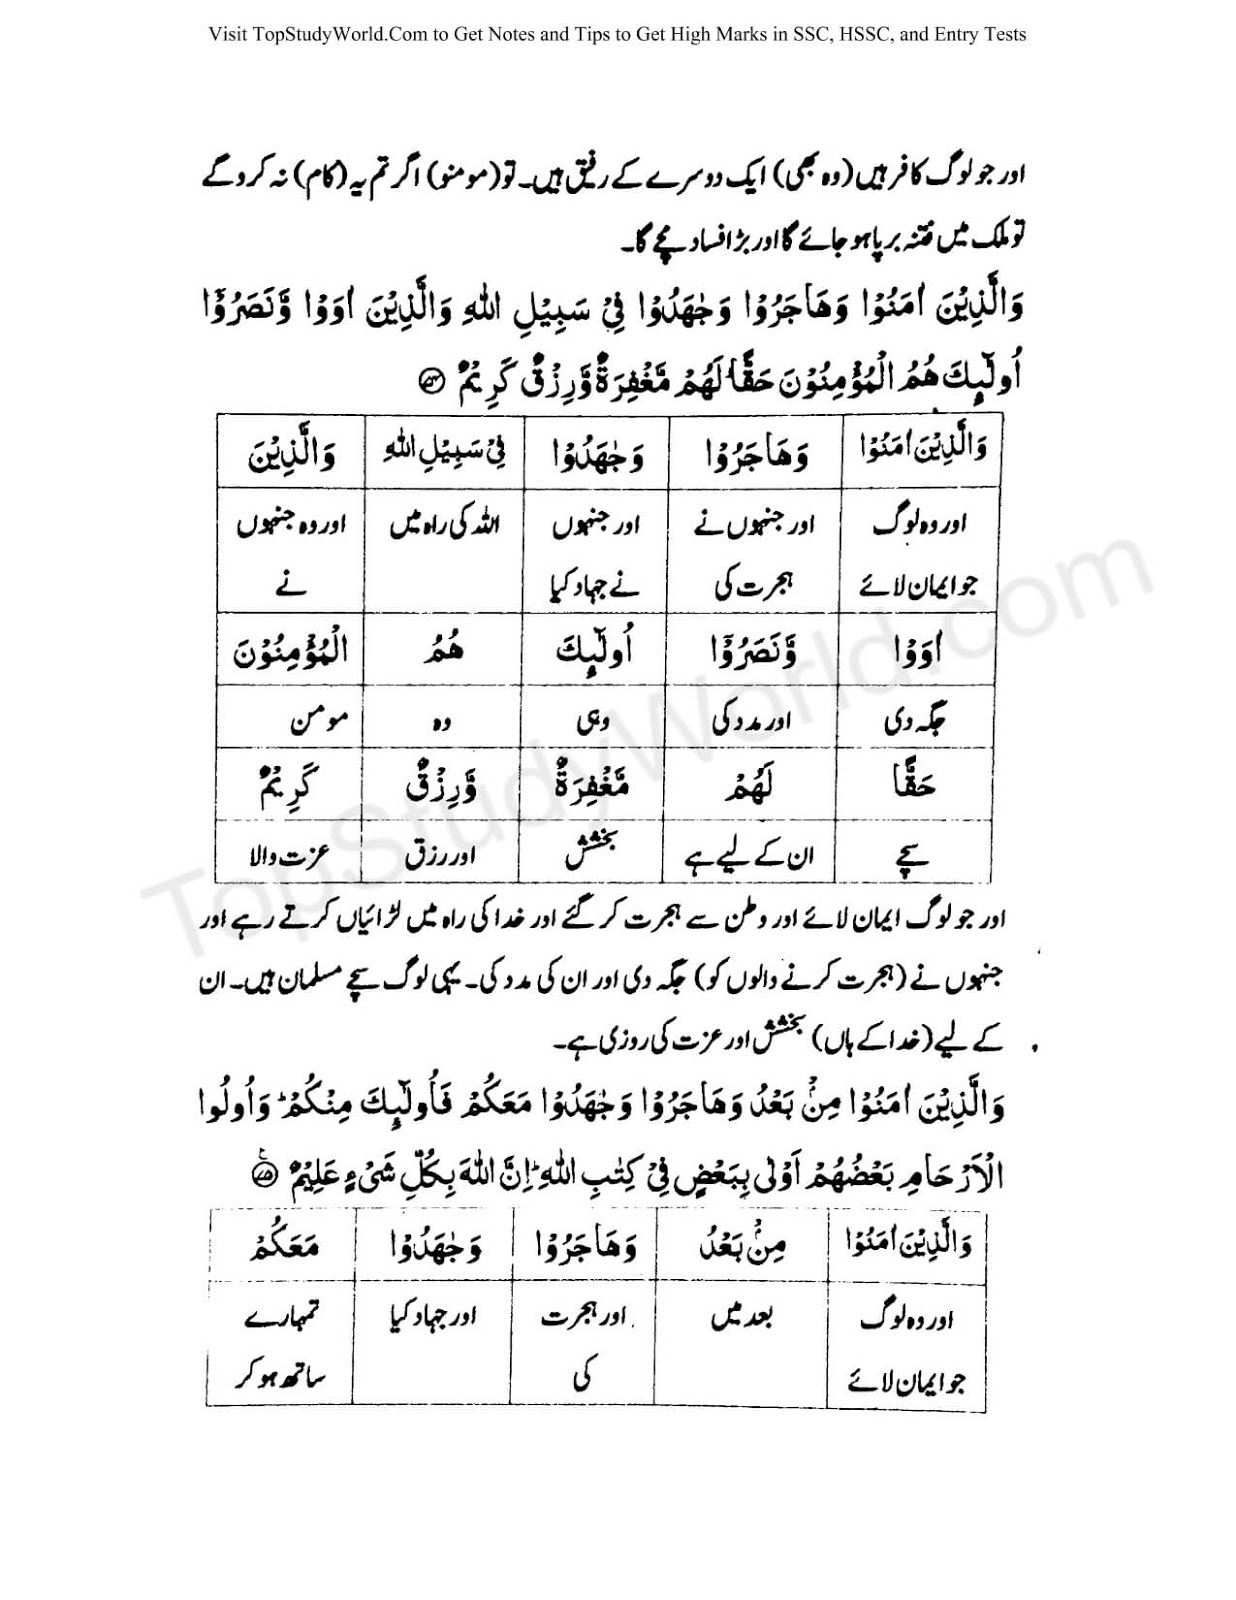 Visit TopStudyWorld.Com to Get Notes and Tips to Get High Marks in SSC, HSSC, and Entry Tests
اور جو لوگ کافر ہیں (وہ بھی) ایک دوسرے کے رفیق ہیں۔ تو (مومنو) اگر تم یہ (کام) نہ کرو گے
تو ملک میں فتنہ برپا ہو جائے گا اور بڑا فساد مچے گا۔
وَالَّذِیْنَ اٰمَنُوْا وَهَاجَرُوْا وَجٰهَدُوْا فِیْ سَبِیْلِ اللّٰهِ وَالَّذِیْنَ اٰوَوْا وَّنَصَرُوْۤا
اُولٰٓئِكَ هُمُ الْمُؤْمِنُوْنَ حَقًّا ؕ لَهُمْ مَّغْفِرَةٌ وَّرِزْقٌ كَرِیْمٌ ﴿۷۴﴾
وَالَّذِیْنَ اٰمَنُوْا وَهَاجَرُوْا وَجٰهَدُوْا فِیْ سَبِیْلِ اللّٰهِ وَالَّذِیْنَ
اور وہ لوگ اور جنہوں نے اور جنہوں اللہ کی راہ میں اور وہ جنہوں
جو ایمان لائے ہجرت کی نے جہاد کیا نے
اٰوَوْا وَّنَصَرُوْۤا اُولٰٓئِكَ هُمُ الْمُؤْمِنُوْنَ
جگہ دی اور مدد کی وہی وہ مومن
حَقًّا لَهُمْ مَّغْفِرَةٌ وَّرِزْقٌ كَرِیْمٌ
سچے ان کے لیے ہے بخشش اور رزق عزت والا
اور جو لوگ ایمان لائے اور وطن سے ہجرت کر گئے اور خدا کی راہ میں لڑائیاں کرتے رہے اور
جنہوں نے (ہجرت کرنے والوں کو) جگہ دی اور ان کی مدد کی۔ یہی لوگ سچے مسلمان ہیں۔ ان
کے لیے (خدا کے ہاں) بخشش اور عزت کی روزی ہے۔
وَالَّذِیْنَ اٰمَنُوْا مِنْۢ بَعْدُ وَهَاجَرُوْا وَجٰهَدُوْا مَعَكُمْ فَاُولٰٓئِكَ مِنْكُمْ ؕ وَاُولُوا
الْاَرْحَامِ بَعْضُهُمْ اَوْلٰى بِبَعْضٍ فِیْ كِتٰبِ اللّٰهِ ؕ اِنَّ اللّٰهَ بِكُلِّ شَیْءٍ عَلِیْمٌ ﴿۷۵﴾
وَالَّذِیْنَ اٰمَنُوْا مِنْۢ بَعْدُ وَهَاجَرُوْا وَجٰهَدُوْا مَعَكُمْ
اور وہ لوگ بعد میں اور ہجرت اور جہاد کیا تمہارے
جو ایمان لائے کی ساتھ ہو کر
TopStudyWorld.com